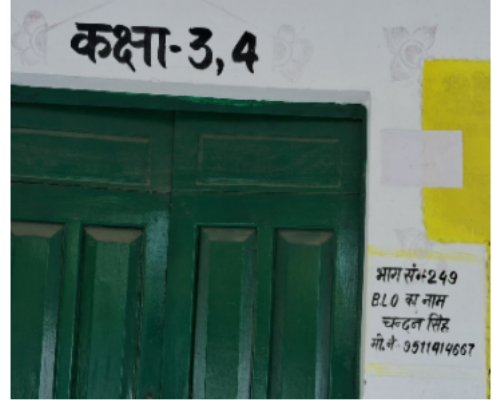 कक्षा-3,4
भाग सं॰-249
BLO का नाम
चन्दन सिंह
मो.नं- 9511414667